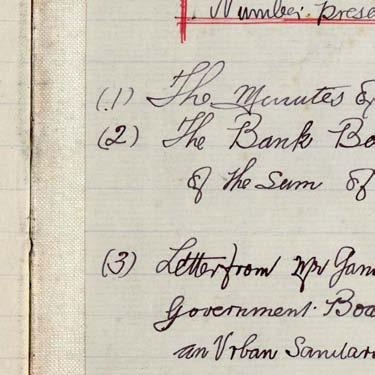 Number prese
(1) The Minutes
(2) The Bank Bo
of the sum of
(3) Letter from Mr Gam
Government Boa
an Urban Sanitar